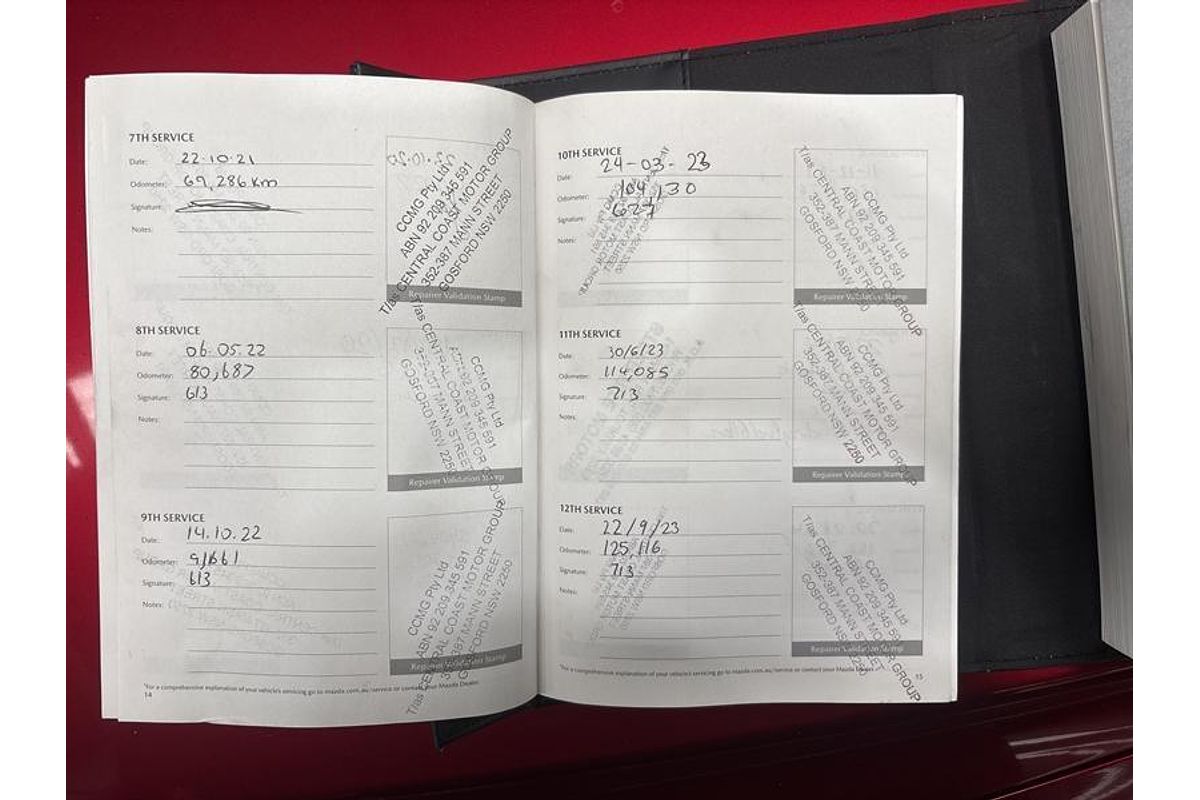 7TH SERVICE
Date: 22·10·21
Odometer: 69,286 Km
Signature:
Notes:
CCMG Pty Ltd
ABN 92 209 345 591
T/as CENTRAL COAST MOTOR GROUP
352-387 MANN STREET
GOSFORD NSW 2250
Repairer Validation Stamp
8TH SERVICE
Date: 06.05.22
Odometer: 80,687
Signature: 613
Notes:
CCMG Pty Ltd
ABN 92 209 345 591
T/as CENTRAL COAST MOTOR GROUP
352-387 MANN STREET
GOSFORD NSW 2250
Repairer Validation Stamp
9TH SERVICE
Date: 14.10.22
Odometer: 91661
Signature: 613
Notes:
CCMG Pty Ltd
ABN 92 209 345 591
T/as CENTRAL COAST MOTOR GROUP
352-387 MANN STREET
GOSFORD NSW 2250
Repairer Validation Stamp
*For a comprehensive explanation of your vehicle's servicing go to mazda.com.au/service or contact your Mazda Dealer.
14
10TH SERVICE
Date: 24-03-23
Odometer: 104,130
Signature: 627
Notes:
CCMG Pty Ltd
ABN 92 209 345 591
T/as CENTRAL COAST MOTOR GROUP
352-387 MANN STREET
GOSFORD NSW 2250
Repairer Validation Stamp
11TH SERVICE
Date: 30/6/23
Odometer: 114,085
Signature: 713
Notes:
CCMG Pty Ltd
ABN 92 209 345 591
T/as CENTRAL COAST MOTOR GROUP
352-387 MANN STREET
GOSFORD NSW 2250
Repairer Validation Stamp
12TH SERVICE
Date: 22/9/23
Odometer: 125,116
Signature: 713
Notes:
CCMG Pty Ltd
ABN 92 209 345 591
T/as CENTRAL COAST MOTOR GROUP
352-387 MANN STREET
GOSFORD NSW 2250
Repairer Validation Stamp
*For a comprehensive explanation of your vehicle's servicing go to mazda.com.au/service or contact your Mazda Dealer.
15